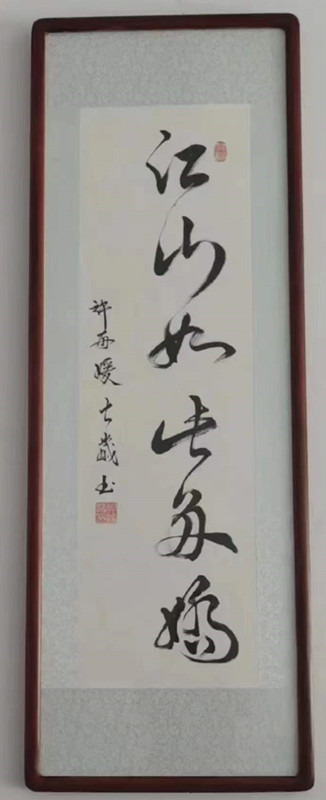 江山如此多娇
许再媛七岁书